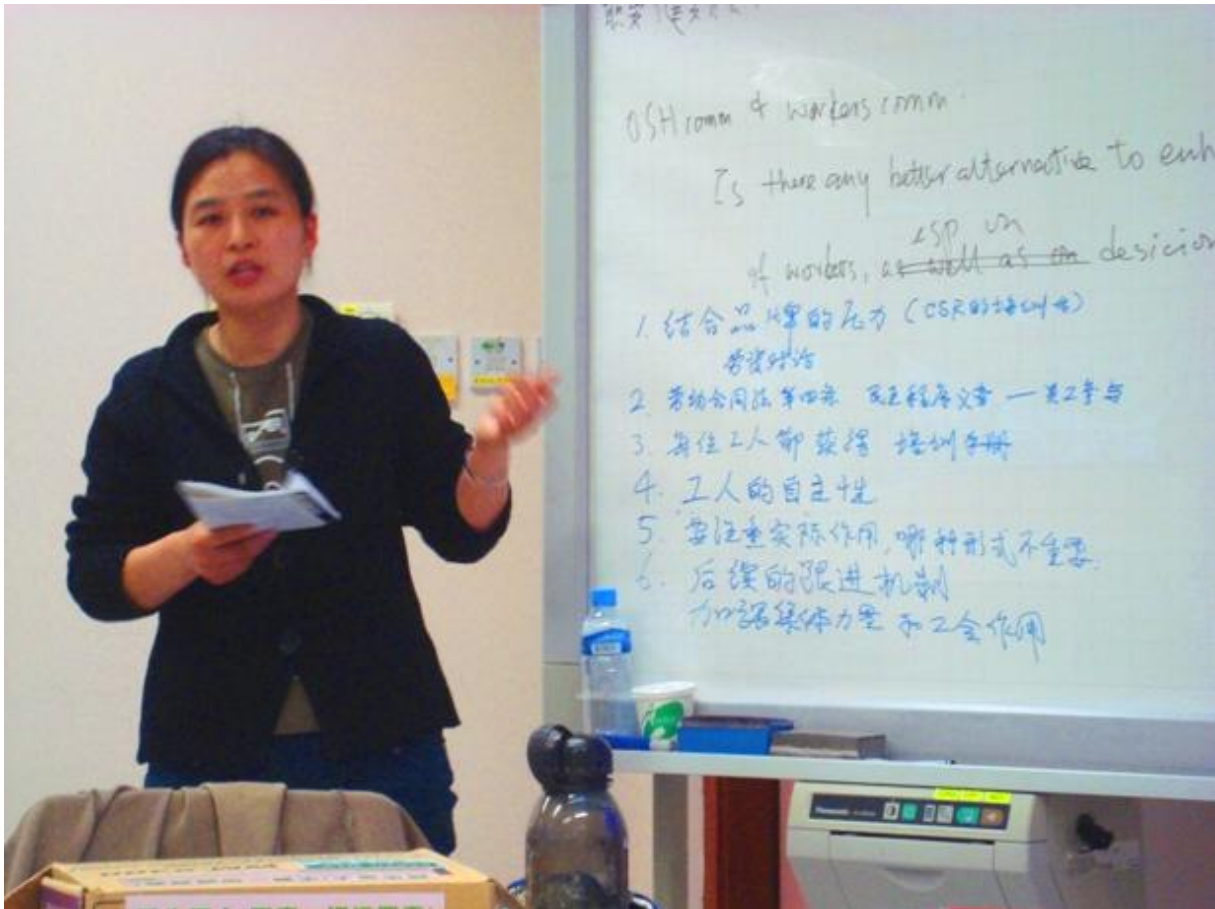 OSH comm & workers comm.
Is there any better alternative to enh
esp on
of workers, as well as on desicion
1. 结合品牌的压力 (CSR的培训等)
劳资对话
2. 劳动合同法第四条 民主程序 — 员工参与
3. 每位工人都获得 培训手册
4. 工人的自主性
5. 要注重实际作用,哪种形式不重要.
6. 后续的跟进机制
加强集体力量和工会作用
Panasonic